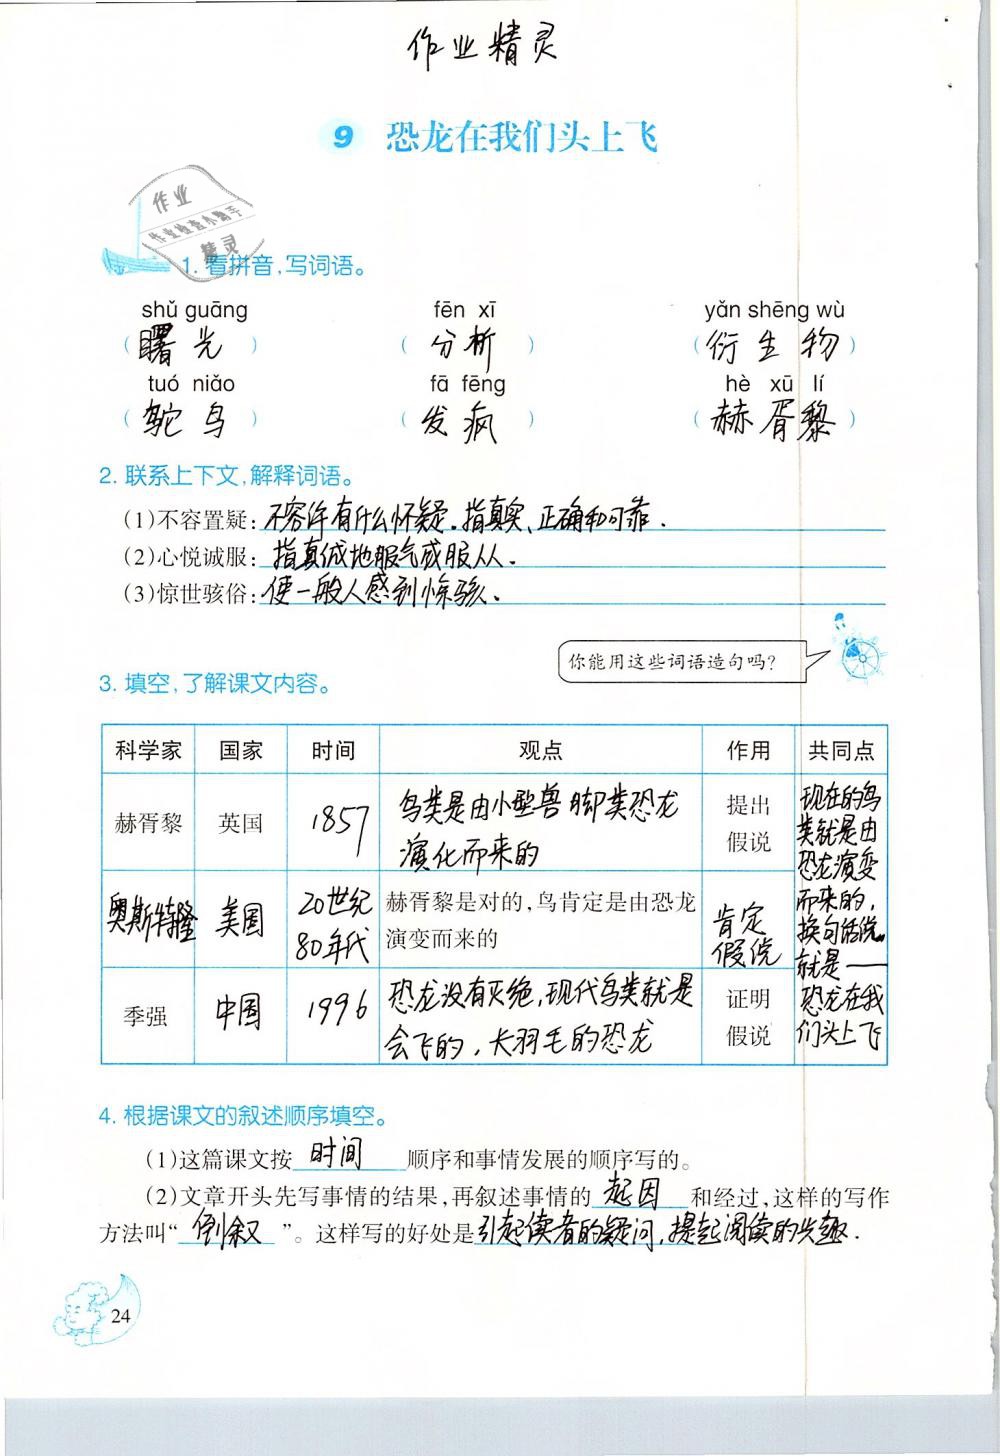 作业精灵
9 恐龙在我们头上飞
作业
作业检查小助手
精灵
1. 看拼音,写词语。
shǔ guāng fēn xī yǎn shēng wù
(曙光) (分析) (衍生物)
tuó niǎo fā fēng hè xū lí
(鸵鸟) (发疯) (赫胥黎)
2. 联系上下文,解释词语。
(1)不容置疑:不容许有什么怀疑.指真实、正确和可靠.
(2)心悦诚服:指真诚地服气或服从.
(3)惊世骇俗:使一般人感到惊骇.
你能用这些词语造句吗?
3. 填空,了解课文内容。
科学家 国家 时间 观点 作用 共同点
赫胥黎 英国 1857 鸟类是由小型兽脚类恐龙演化而来的 提出假说 现在的鸟类就是由恐龙演变而来的,换句话说就是——恐龙在我们头上飞
奥斯特隆 美国 20世纪80年代 赫胥黎是对的,鸟肯定是由恐龙演变而来的 肯定假说
季强 中国 1996 恐龙没有灭绝,现代鸟类就是会飞的,长羽毛的恐龙 证明假说
4. 根据课文的叙述顺序填空。
(1)这篇课文按 时间 顺序和事情发展的顺序写的。
(2)文章开头先写事情的结果,再叙述事情的 起因 和经过,这样的写作
方法叫“ 倒叙 ”。这样写的好处是引起读者的疑问,提起阅读的兴趣.
24